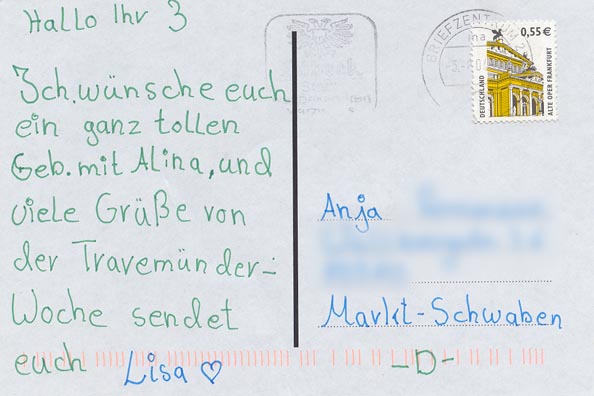 Hallo Ihr 3
Ich wünsche euch
ein ganz tollen
Geb. mit Alina, und
viele Grüße von
der Travemünder-
Woche sendet
euch Lisa ♡
BRIEFZENTRUM 2
0,55 €
DEUTSCHLAND
ALTE OPER FRANKFURT
Anja
Markt-Schwaben
-D-